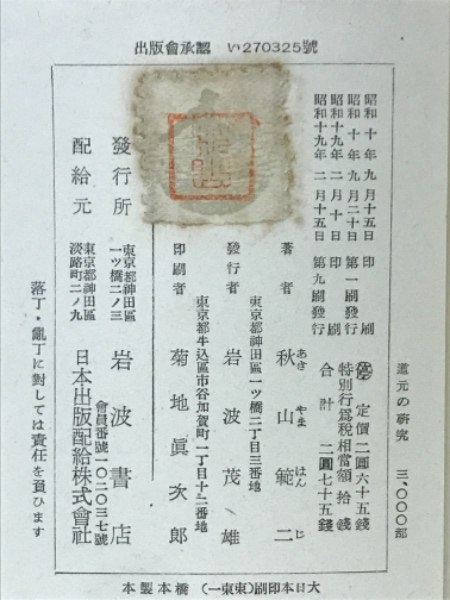 出版會承認 い270325號
道元の研究 三、〇〇〇部
昭和十年九月十五日 印刷
昭和十年九月二十日 第一刷發行
昭和十九年二月十日 印刷
昭和十九年二月十五日 第九刷發行
㊡ 定價二圓六十五錢
特別行爲税相當額拾錢
合計 二圓七十五錢
著者 秋山範二
あき やま はん じ
東京都神田區一ツ橋二丁目三番地
發行者 岩波茂雄
東京都牛込區市谷加賀町一丁目十二番地
印刷者 菊地眞次郎
發行所 東京都神田區一ツ橋二ノ三 岩波書店
會員番號一〇二〇三七號
配給元 東京都神田區淡路町二ノ九 日本出版配給株式會社
落丁・亂丁に對しては責任を負ひます
大日本印刷(東東一) 橋本製本